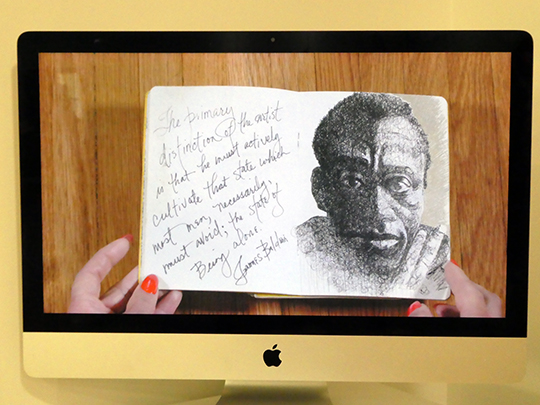 The primary
distinction of the artist
is that he must actively
cultivate that state which
most men, necessarily,
must avoid; the state of
Being alone.
James Baldwin